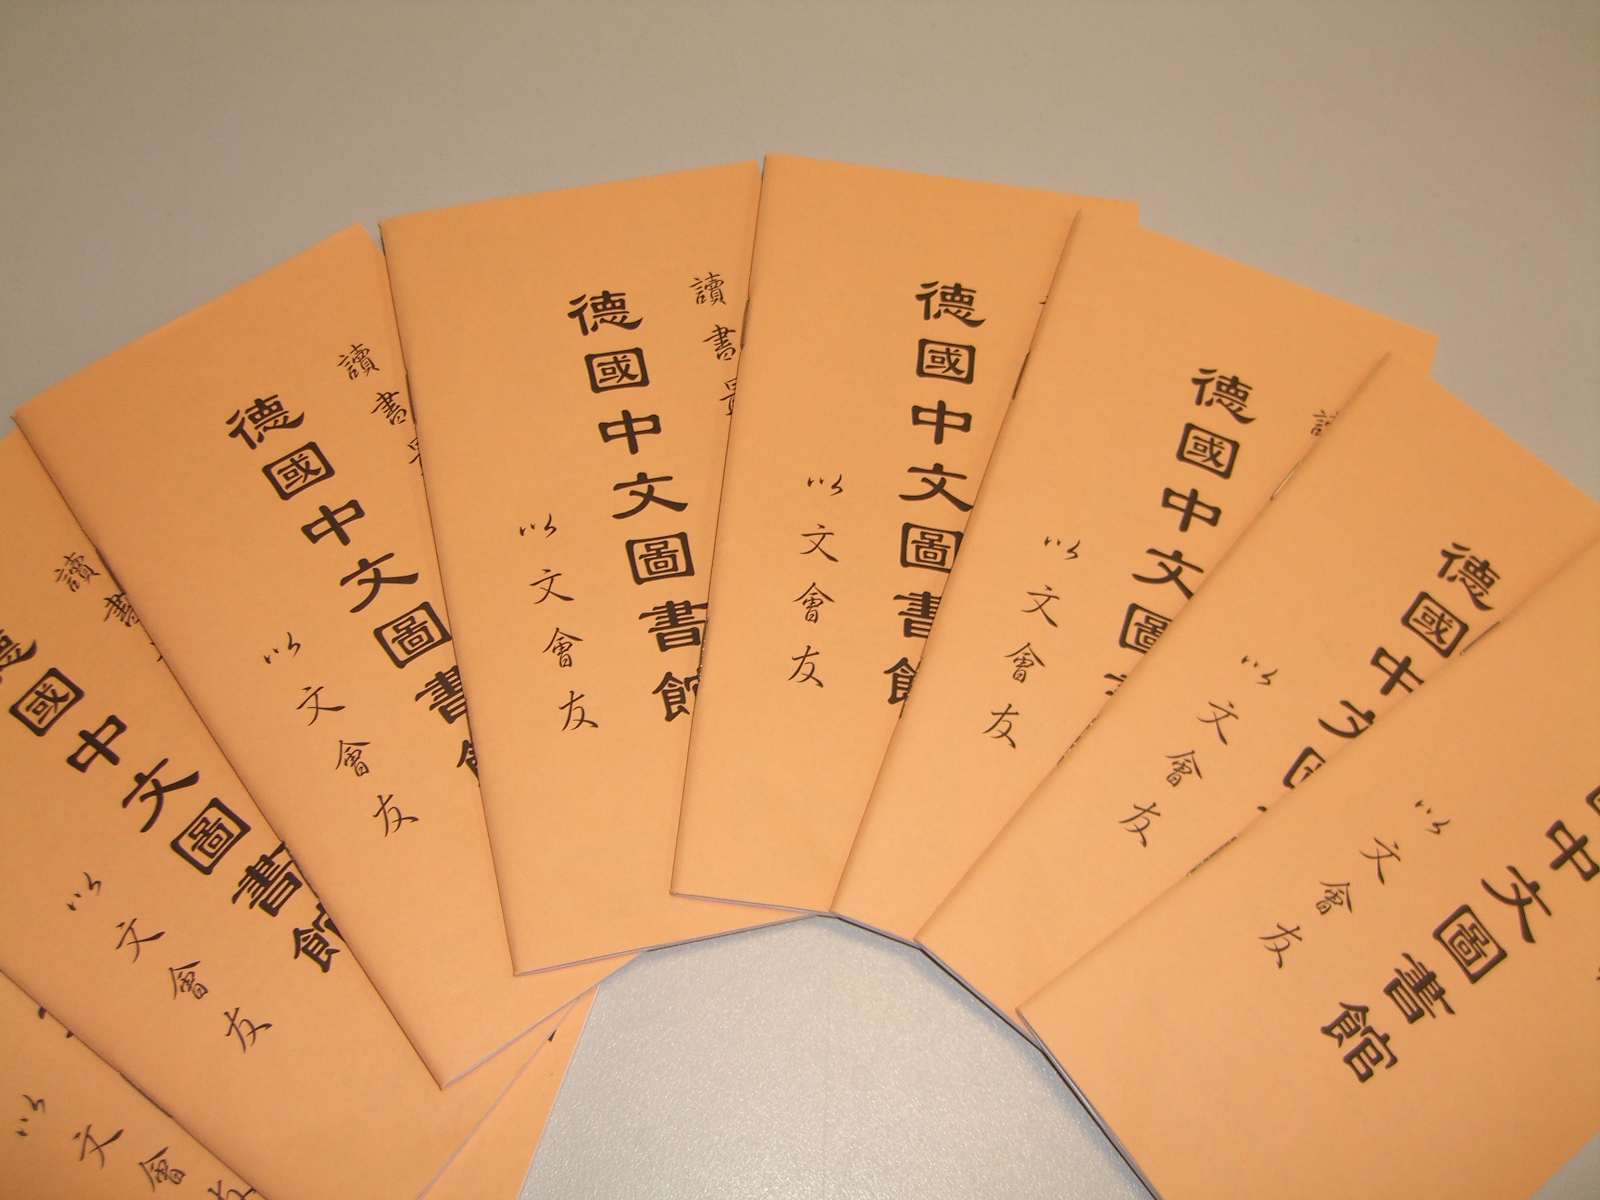 讀書
德國中文圖書館
以文會友
讀書
德國中文圖書館
以文會友
讀書
德國中文圖書館
以文會友
德國中文圖書館
以文會友
德國中文圖
以文會友
德國中文
以文會友
國中文圖書館
以文會友
以文會友